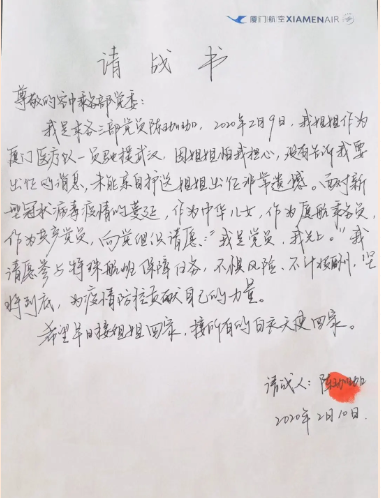 厦门航空 XIAMENAIR
请战书
尊敬的空中乘务部党委:
我是乘务三部党员陈 2020年2月9日,我姐姐作为
厦门医疗队一员驰援武汉,因姐姐怕我担心,没有告诉我要
出征的消息,未能亲自护送姐姐出征非常遗憾。面对新
型冠状病毒疫情的蔓延,作为中华儿女,作为厦航乘务员,
作为共产党员,向党组织请愿:"我是党员,我先上。"我
请愿参与特殊航班保障任务,不惧风险,不计报酬,坚
持到底,为疫情防控贡献自己的力量。
希望早日接姐姐回家,接所有的白衣天使回家。
请战人:陈
2020年2月10日